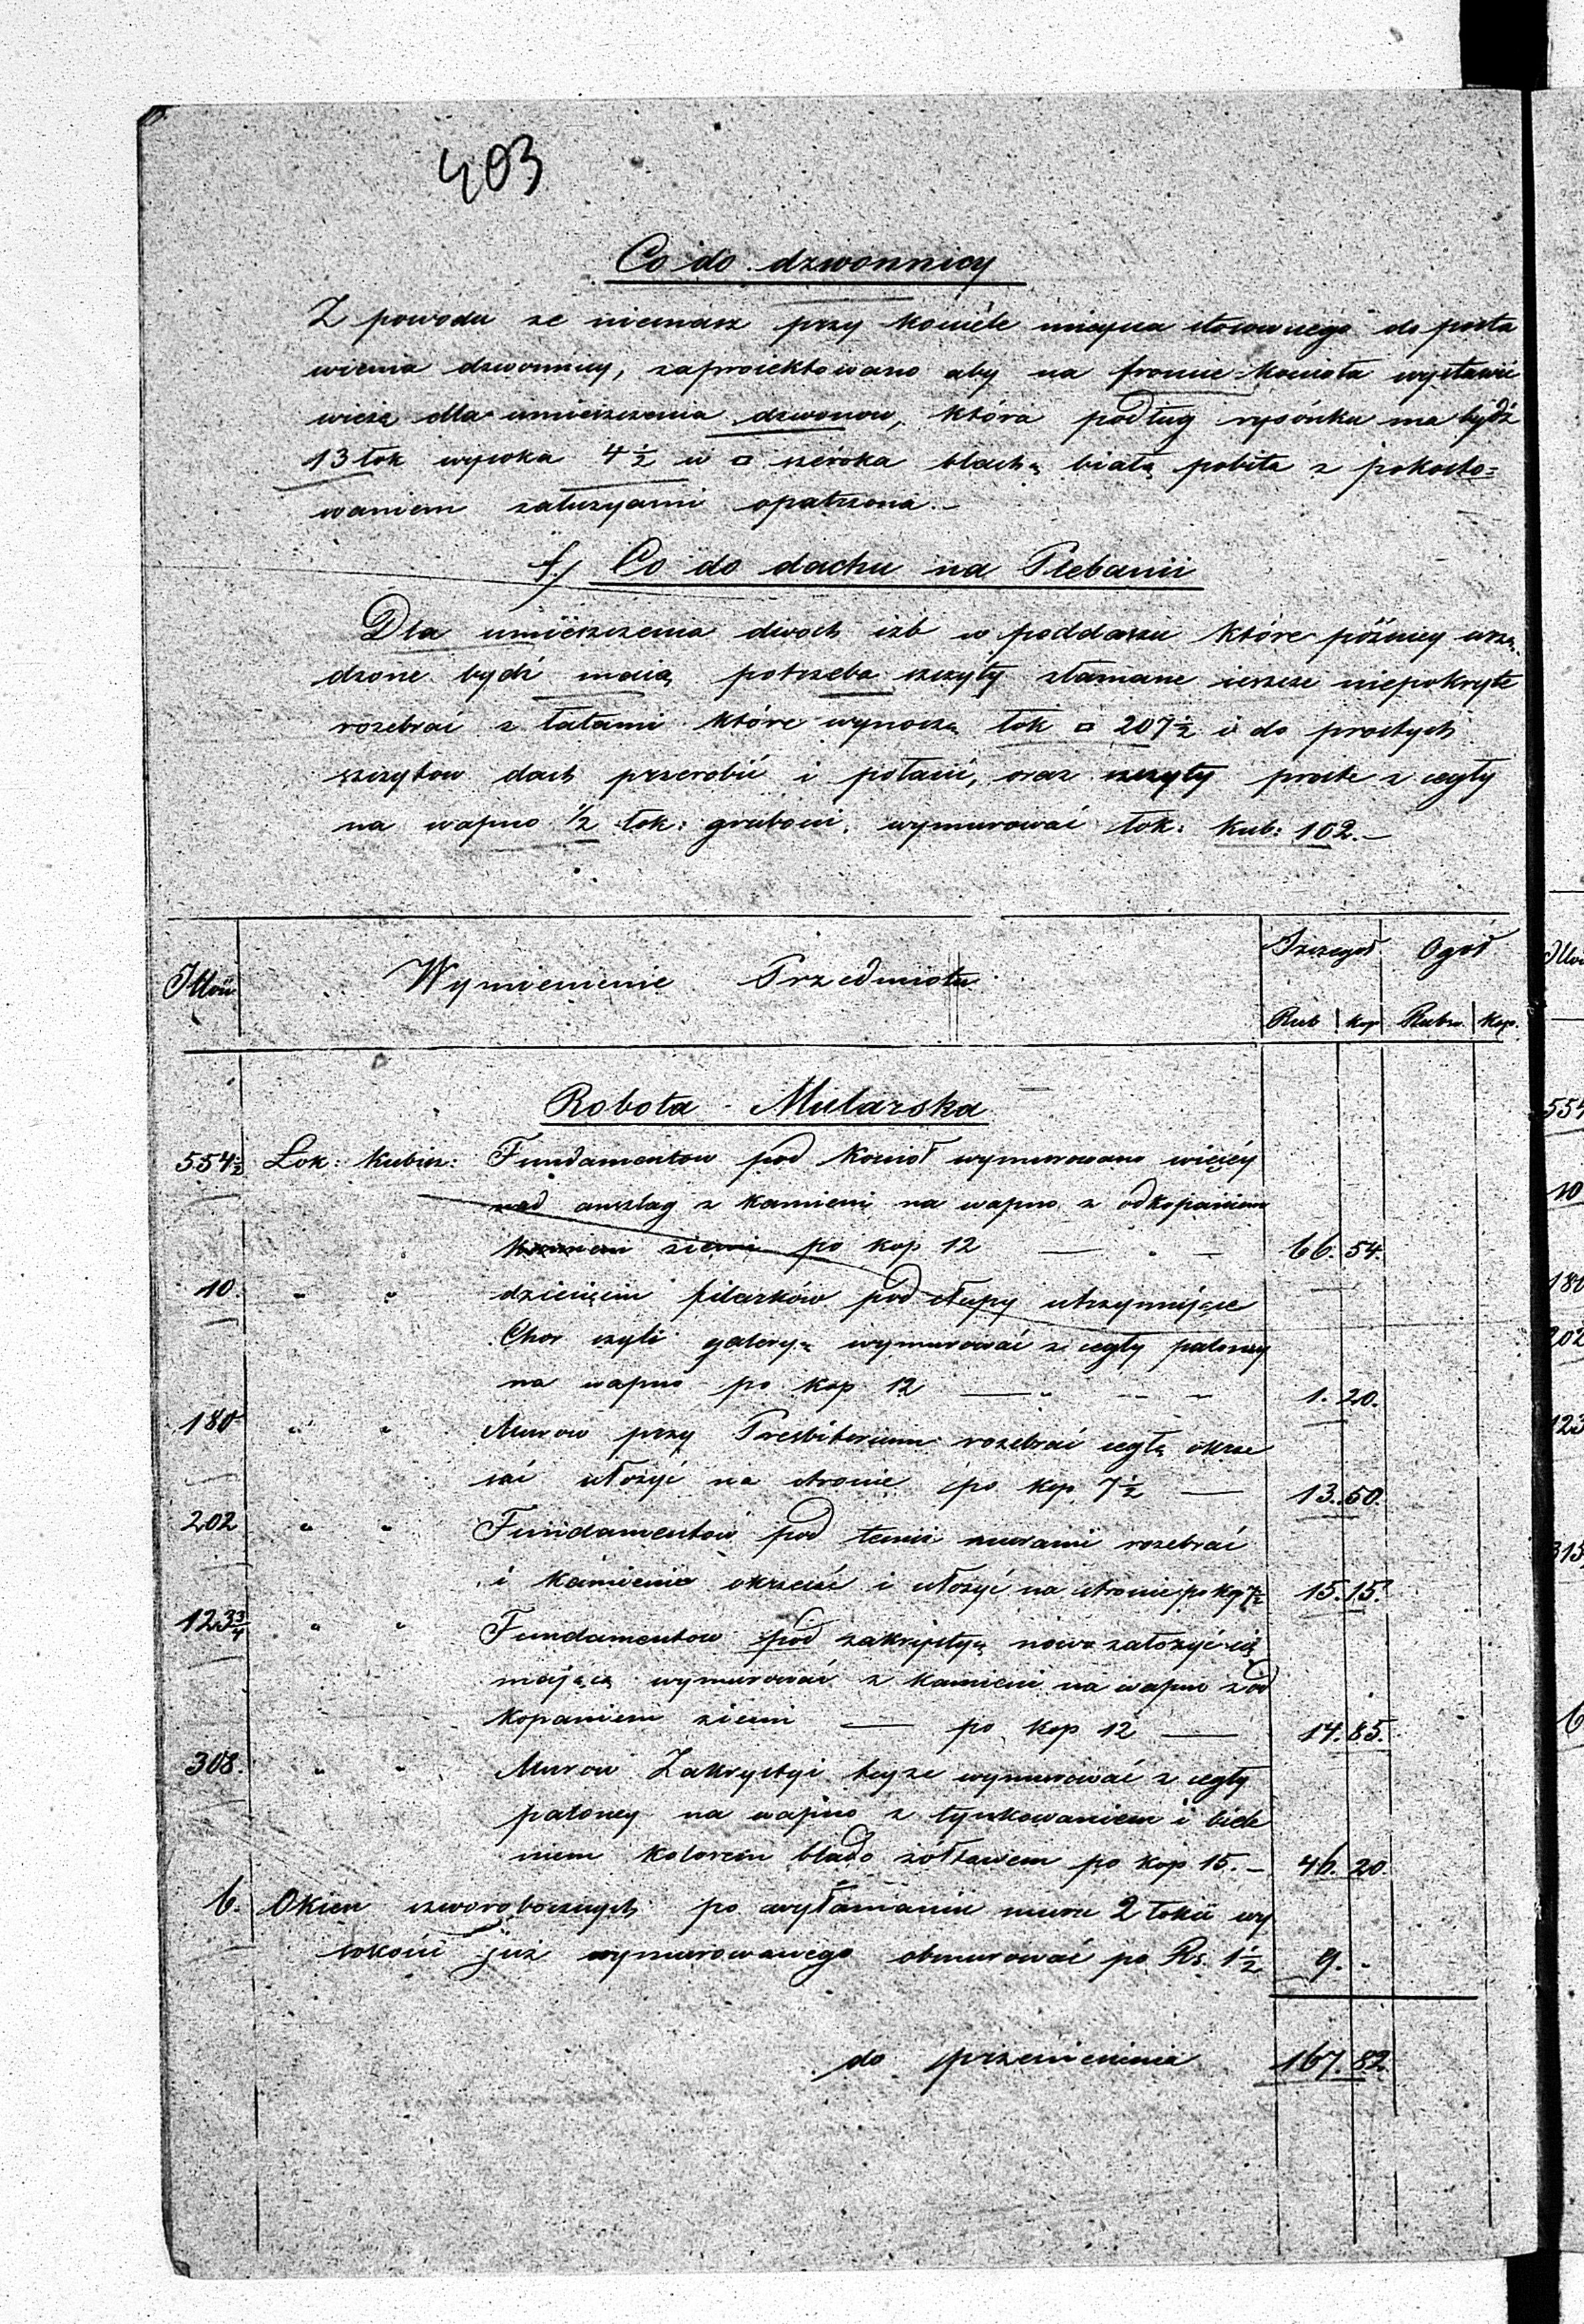 403
Co do dzwonnicy
Z powodu ze niemasz przy kosciele mieysca stosownego do posta
wienia dzwonnicy, zaproiektowano aby na froncie kosciola wystawic
wieżą dla umieszczenia dzwonow, która podług rysónku ma bydź
13 łok wysoka 4½ w □ szeroka blachą białą pobita z pokosto=
waniem zaluzyami opatrzona.—
f.) Co do dachu na Plebanii
Dla umiészczenia dwoch izb w poddaszu które późniey urzą
dzone bydź maią potrzeba szczyty złamane ieszcze niepokryte
rozebrać z łatami które wynoszą łok □ 207½ i do prostych
szczytow dach przerobić i połacić, oraz szczyty proste z cegły
na wapno ½ łok: grubosci wymurować łok: kub: 102.—
Illość
Wymienienie Przedmiotu
Szczegoł
Ogoł
Rub kop Rubsr kop.
Robota - Mularska
554½ Łok: kubicz: Fundamentow pod kosciół wymurowano więcéy
nad anszlag z kamieni na wapno z odkopaniem
ziemi po kop 12 — . — 66. 54.
10. " " dziesięciu filarków pod słupy utrzymujące
Chor czyli galeryą wymurować z cegły paloney
na wapno po kop 12 — 1. 20.
180 " " Murow przy Presbiterium rozebrać cegłą okrze
sać ułożyć na stronie po kop 7½ — 13. 50.
202 " " Fundamentów pod temi murami rozebrać
i kamienie okrzesać i ułożyć na stronie po kop 7½ 15. 15.
123¾ " " Fundamentow pod zakrystyą nowo założyć się
mającą wymurować z kamieni na wapno z od
kopaniem ziemi — po kop 12 — 14. 85.
308. " " Murow Zakrystyi teyże wymurować z cegły
paloney na wapno z tynkowaniem i biele
niem kolorem blado żółtawem po kop 15.— 46. 20.
6. Okien czworobocznych po wyłamaniu muru 2 łokci wy
sokości już wymurowanego obmurować po Rs. 1½ 9. "
do przeniesienia 167. 82.